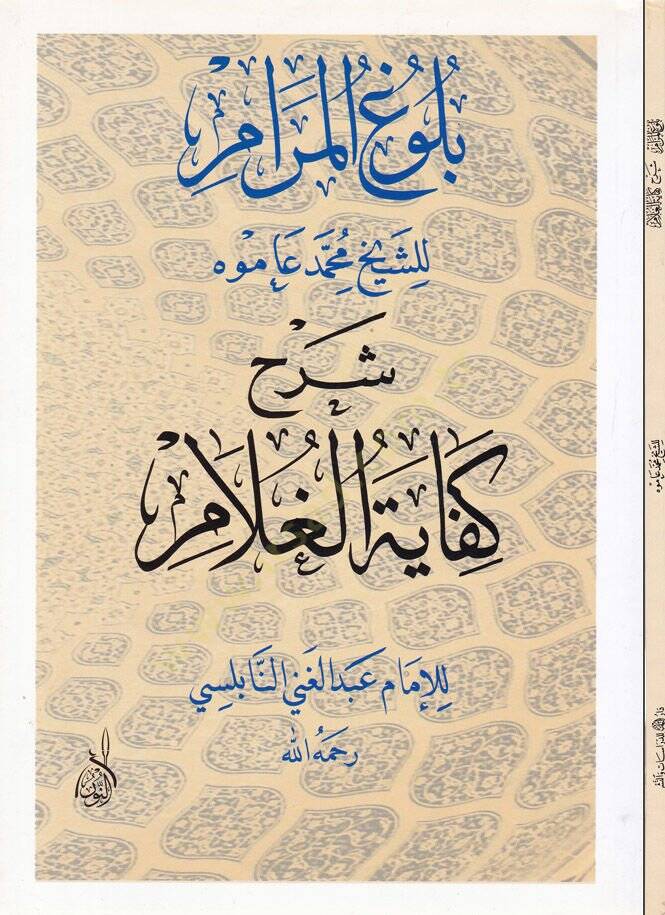 بُلُوغُ المَرَامِ
لِلشَّيْخ مُحَمَّد عَامُوه
شَرْحُ
كِفَايَةُ الغُلَامِ
لِلإِمَام عَبد الغَني النَّابلِسِي
رحمَهُ الله
النُّور
بلوغ المرام شرح كفاية الغلام
للشيخ محمد عاموه